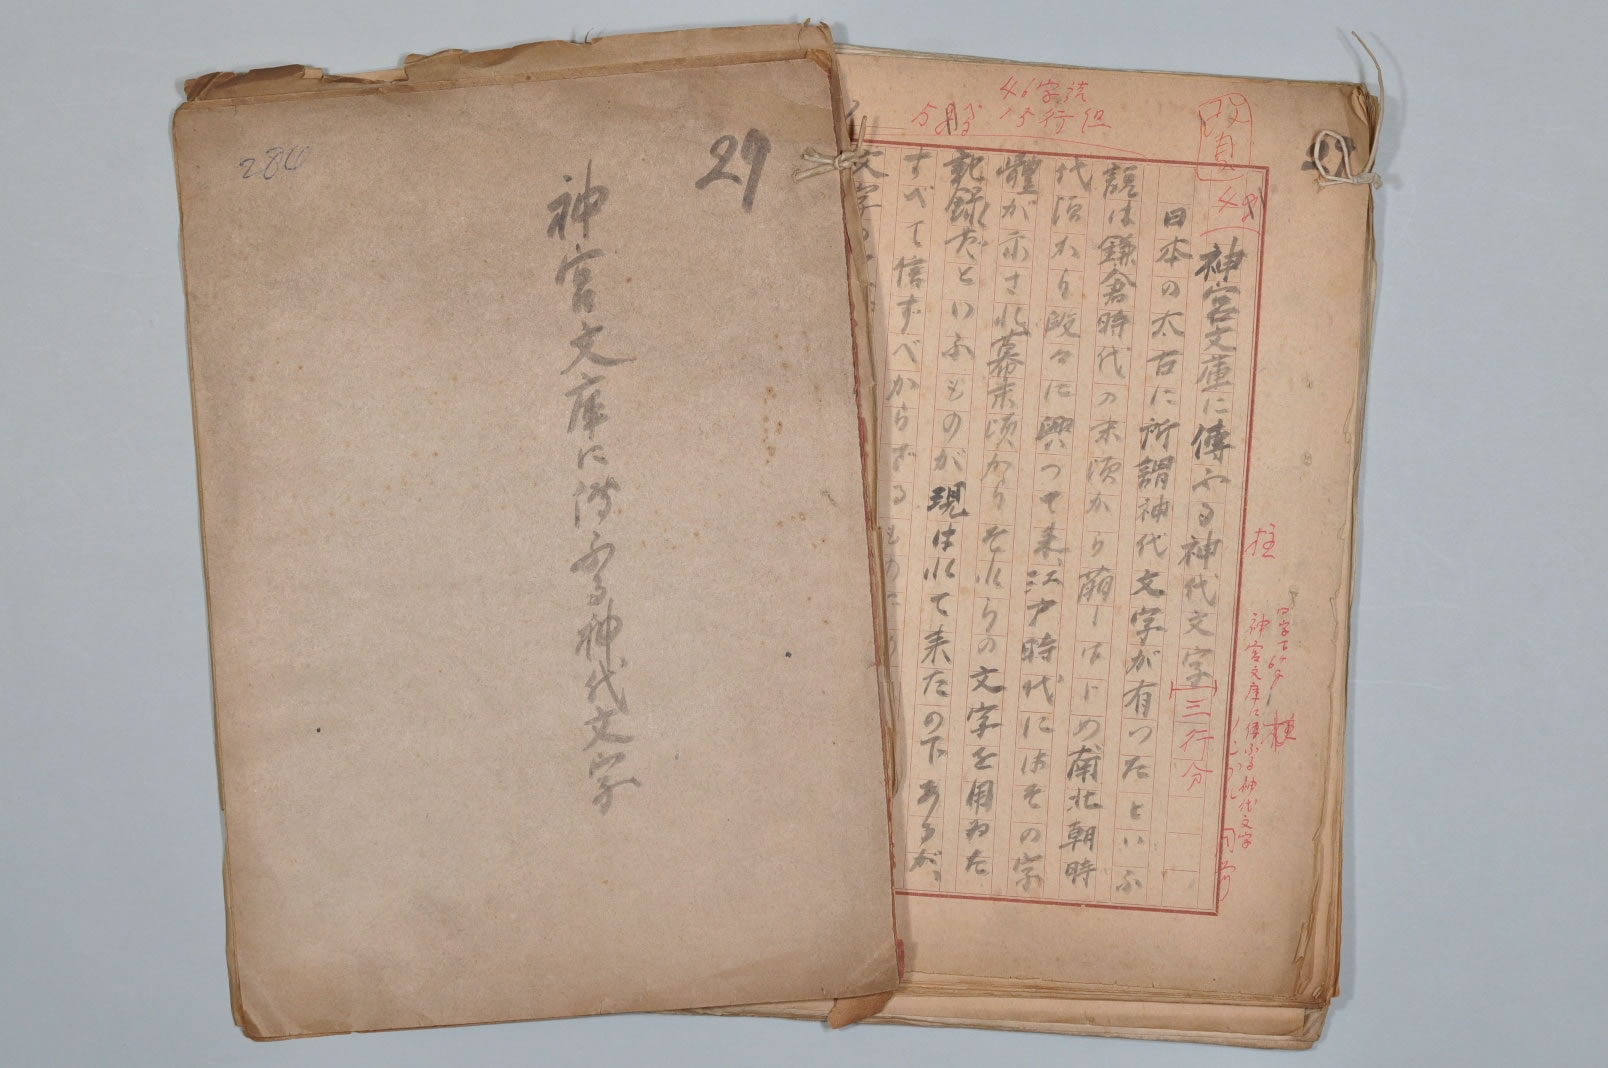 286
27
神宮文庫に傳ふる神代文字
46字詰
15行組
改頁
神宮文庫に傳ふる神代文字
三行分
日本の太古に所謂神代文字が有つたといふ
說は鎌倉時代の末頃から萠しはじめ南北朝時
代頃から段々に興つて来、江戸時代にはその字
體が示され幕末頃からそれらの文字を用ゐた
記録だといふものが現はれて来たのであるが、
すべて信ずべからざるもの
文字
柱
神宮文庫に傳ふる神代文字